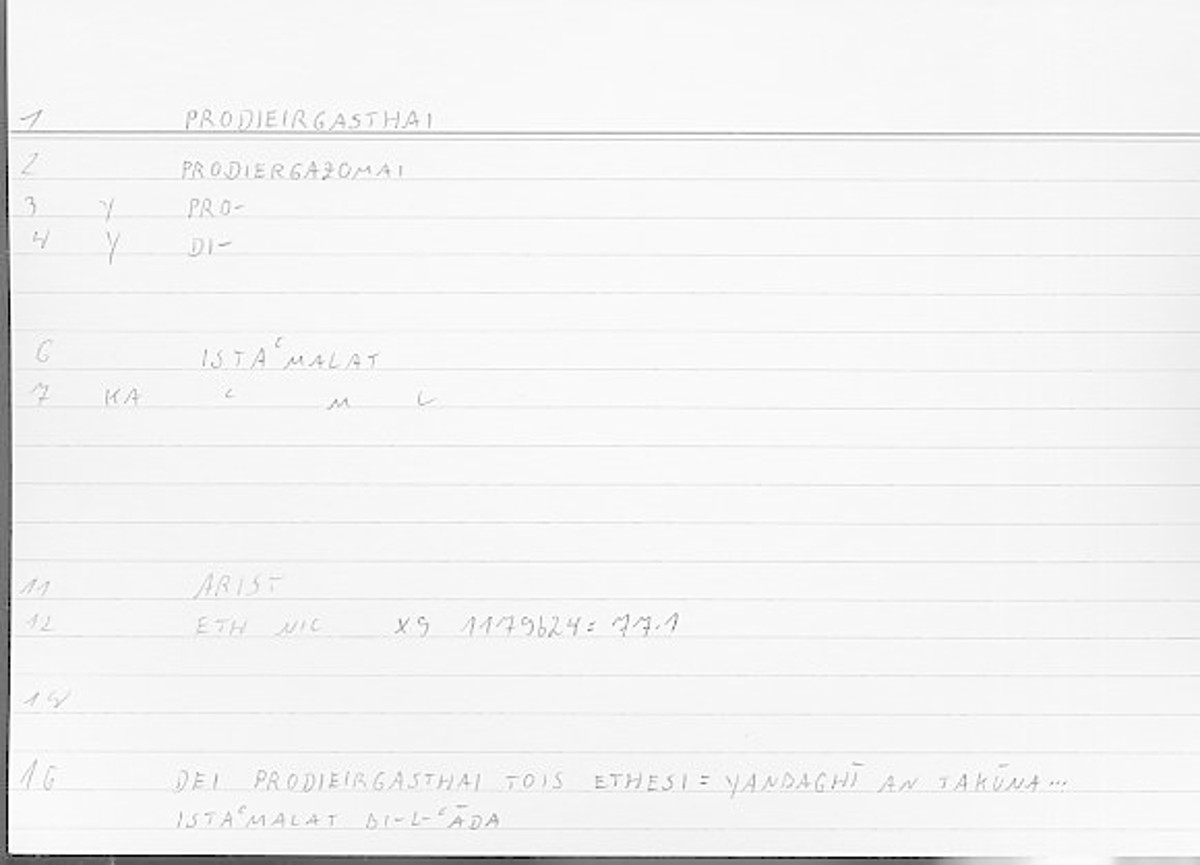 1 PRODIEIRGASTHAI
2 PRODIERGAZOMAI
3 Y PRO-
4 Y DI-
6 ISTAʿMALAT
7 KA ʿ M L
11 ARIST
12 ETH NIC X9 1179b24 = 77.1
16 DEI PRODIEIRGASTHAI TOIS ETHESI = YANBAGHĪ AN TAKŪNA...
ISTAʿMALAT BI-L-ʿĀDA